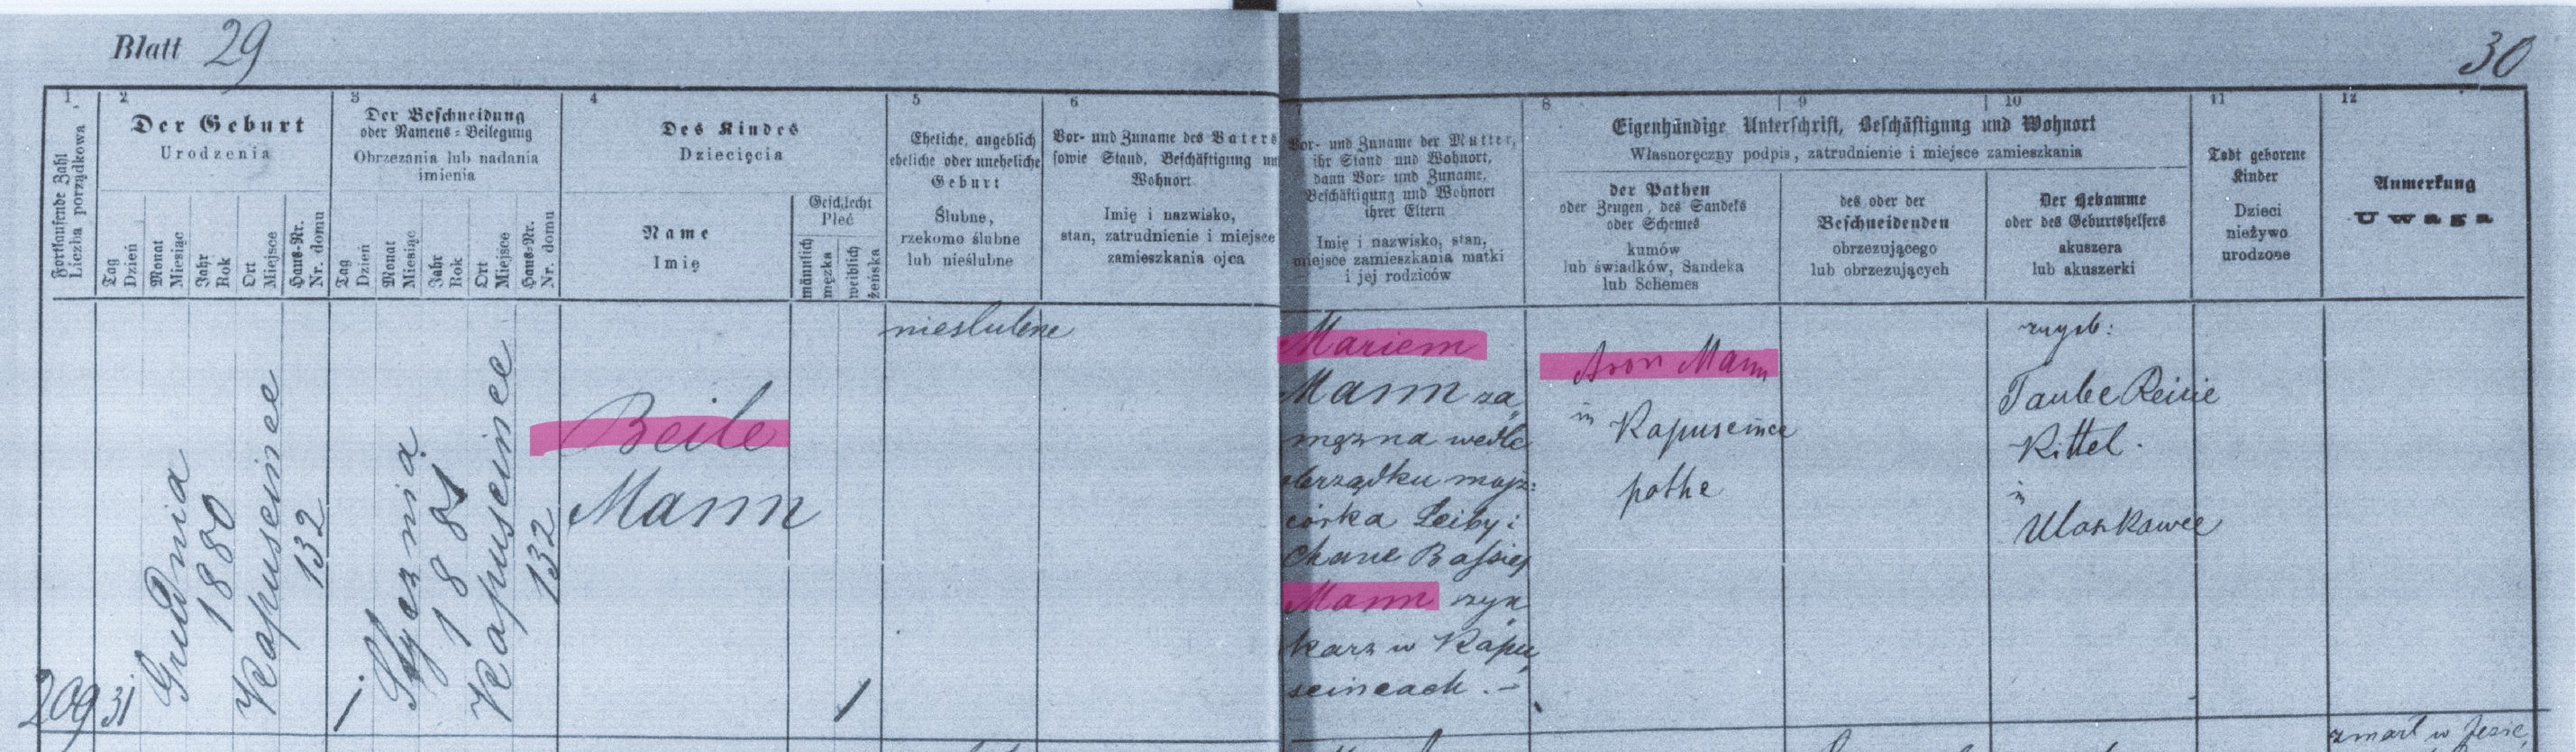 Blatt 29
30
1
Fortlaufende Zahl
Liczba porządkowa
2
Der Geburt
Urodzenia
Tag
Dzień
Monat
Miesiąc
Jahr
Rok
Ort
Miejsce
Haus-Nr.
Nr. domu
3
Der Beschneidung
oder Namens-Beilegung
Obrzezania lub nadania
imienia
Tag
Dzień
Monat
Miesiąc
Jahr
Rok
Ort
Miejsce
Haus-Nr.
Nr. domu
4
Des Kindes
Dziecięcia
Name
Imię
Geschlecht
Płeć
männlich
męzka
weiblich
żeńska
5
Eheliche, angeblich
eheliche oder uneheliche
Geburt
Ślubne,
rzekomo ślubne
lub nieślubne
6
Vor- und Zuname des Vaters
sowie Stand, Beschäftigung un
Wohnort
Imię i nazwisko,
stan, zatrudnienie i miejsce
zamieszkania ojca
7
Vor- und Zuname der Mutter,
ihr Stand und Wohnort,
dann Vor- und Zuname,
Beschäftigung und Wohnort
ihrer Eltern
Imię i nazwisko, stan,
miejsce zamieszkania matki
i jej rodziców
8
9
10
Eigenhändige Unterschrift, Beschäftigung und Wohnort
Własnoręczny podpis, zatrudnienie i miejsce zamieszkania
der Pathen
oder Zeugen, des Sandeks
oder Schemes
kumów
lub świadków, Sandeka
lub Schemes
des oder der
Beschneidenden
obrzezującego
lub obrzezujących
Der Hebamme
oder des Geburtshelfers
akuszera
lub akuszerki
11
Todt geborene
Kinder
Dzieci
nieżywo
urodzone
12
Anmerkung
Uwaga
209
31
Grudnia
1880
Kapuscince
132
1
Stycznia
1881
Kapuscince
132
Beile
Mann
1
nieslubne
Mariem
Mann za
mężna wedle
obrządku mojż:
córka Leiby i
Chane Bassie
Mann szyn
karz w Kapu
scincach. –
Aron Mann
in Kapuscince
pathe
Taube Reisie
Kittel.
in
Ulaszkowce
zmarł w Jezie